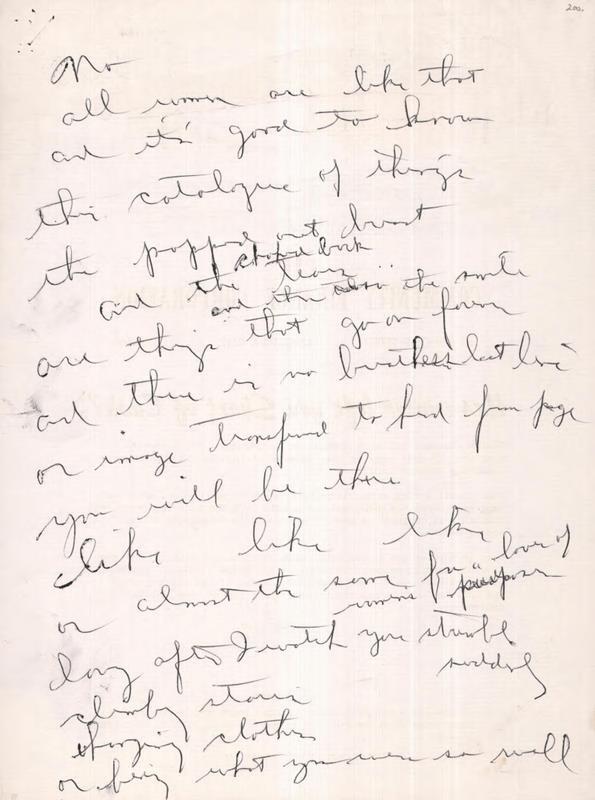 200.
No
all women are like that
and it's good to know
this catalogue of things
the popped out breast
choked back
and the tears
and the the smile
are things that go on forever
and there is no breathless last line
or image transferred to head from page
you will be there
like like like
or almost the same for a lover of
women's
long after I watch you stumble
suddenly
climbing stairs
changing clothes
or being what you were so well